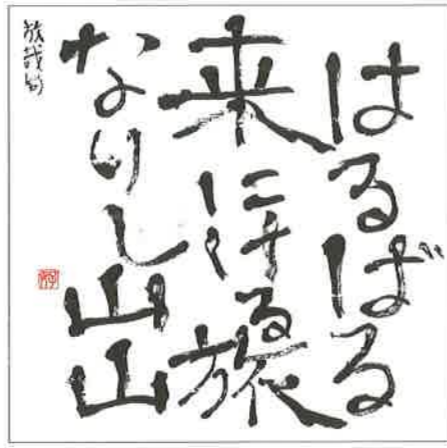 はるばる
来にける旅
なりし山山
放哉句